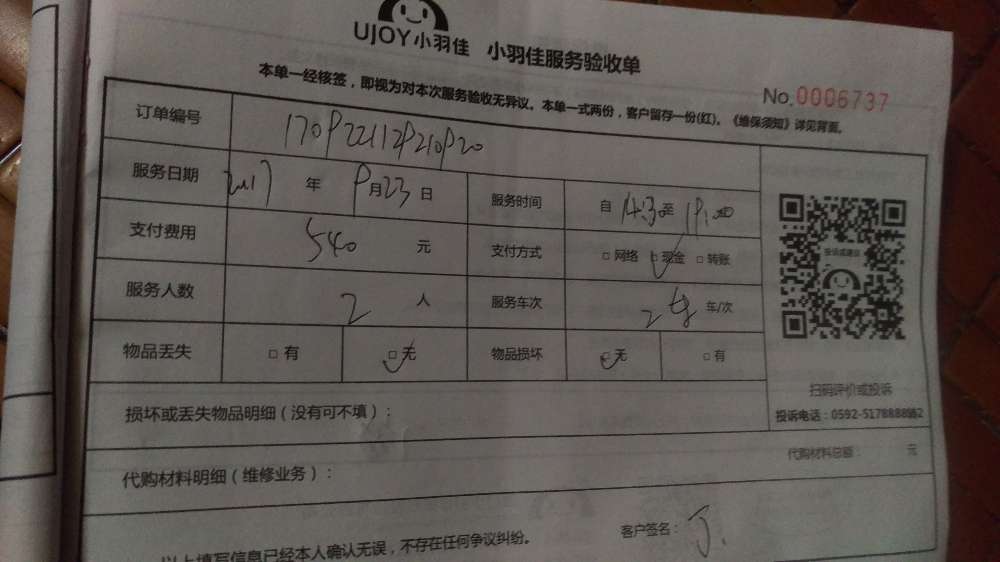 UJOY小羽佳 小羽佳服务验收单
本单一经核签，即视为对本次服务验收无异议。本单一式两份，客户留存一份(红)。《维保须知》详见背面。
No.0006737
订单编号 1709221129210920
服务日期 2017 年 9月23日 服务时间 自 14:30至19:00
支付费用 540 元 支付方式 □网络 □现金 □转账
服务人数 2 人 服务车次 2 车/次
物品丢失 □有 □无 物品损坏 □无 □有
投诉或建议
扫码评价或投诉
投诉电话：0592-5178888
损坏或丢失物品明细（没有可不填）：
代购材料明细（维修业务）： 代购材料总额： 元
以上填写信息已经本人确认无误，不存在任何争议纠纷。
客户签名：